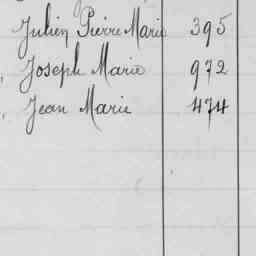 Julien Pierre Marie 395
Joseph Marie 972
Jean Marie 474